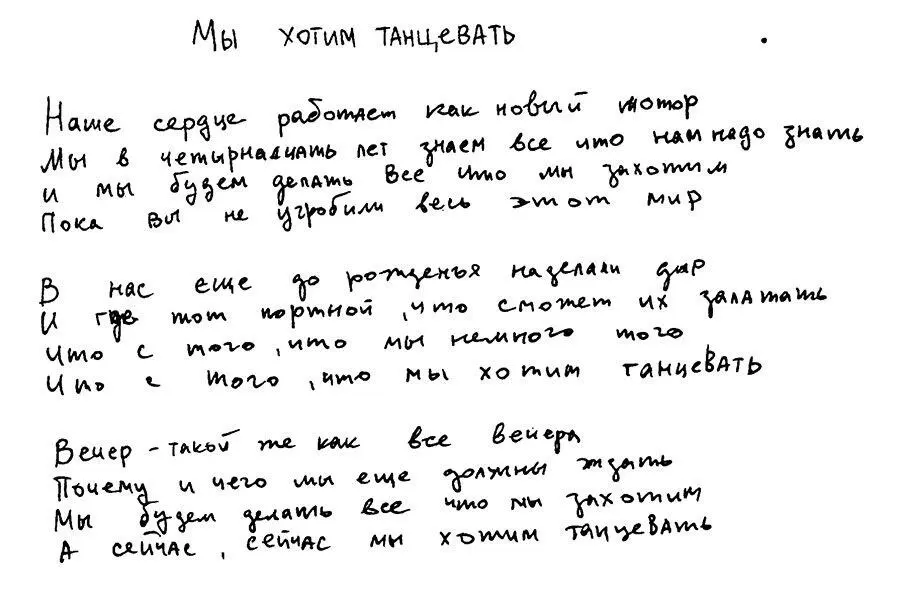 Мы хотим танцевать
Наше сердце работает как новый мотор
Мы в четырнадцать лет знаем все что нам надо знать
и мы будем делать все что мы захотим
Пока вы не угробили весь этот мир
В нас еще до рожденья наделали дыр
И где тот портной, что сможет их залатать
Что с того, что мы немного того
Что с того, что мы хотим танцевать
Вечер - такой же как все вечера
Почему и чего мы еще должны ждать
Мы будем делать все что мы захотим
А сейчас, сейчас мы хотим танцевать